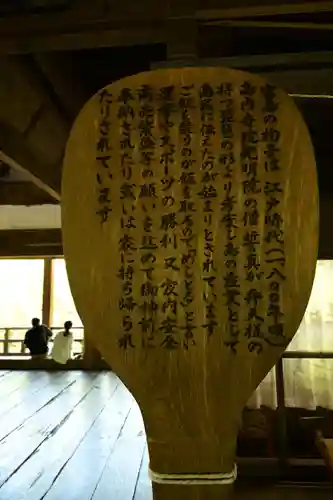 宮島の杓子は 江戸時代(一八〇〇年頃)
島内寺院光明院の僧誓真が弁天様の
持つ琵琶の形より考案し島の産業として
島民に伝えたのが始まりとされています
ご飯を のが 飯を取るのでめしとる と言い
選挙やスポーツの勝利 又家内安全
商売繁盛等の願いを込めて御神前に
奉納されたり或いは家に持ち帰られ
たりされています